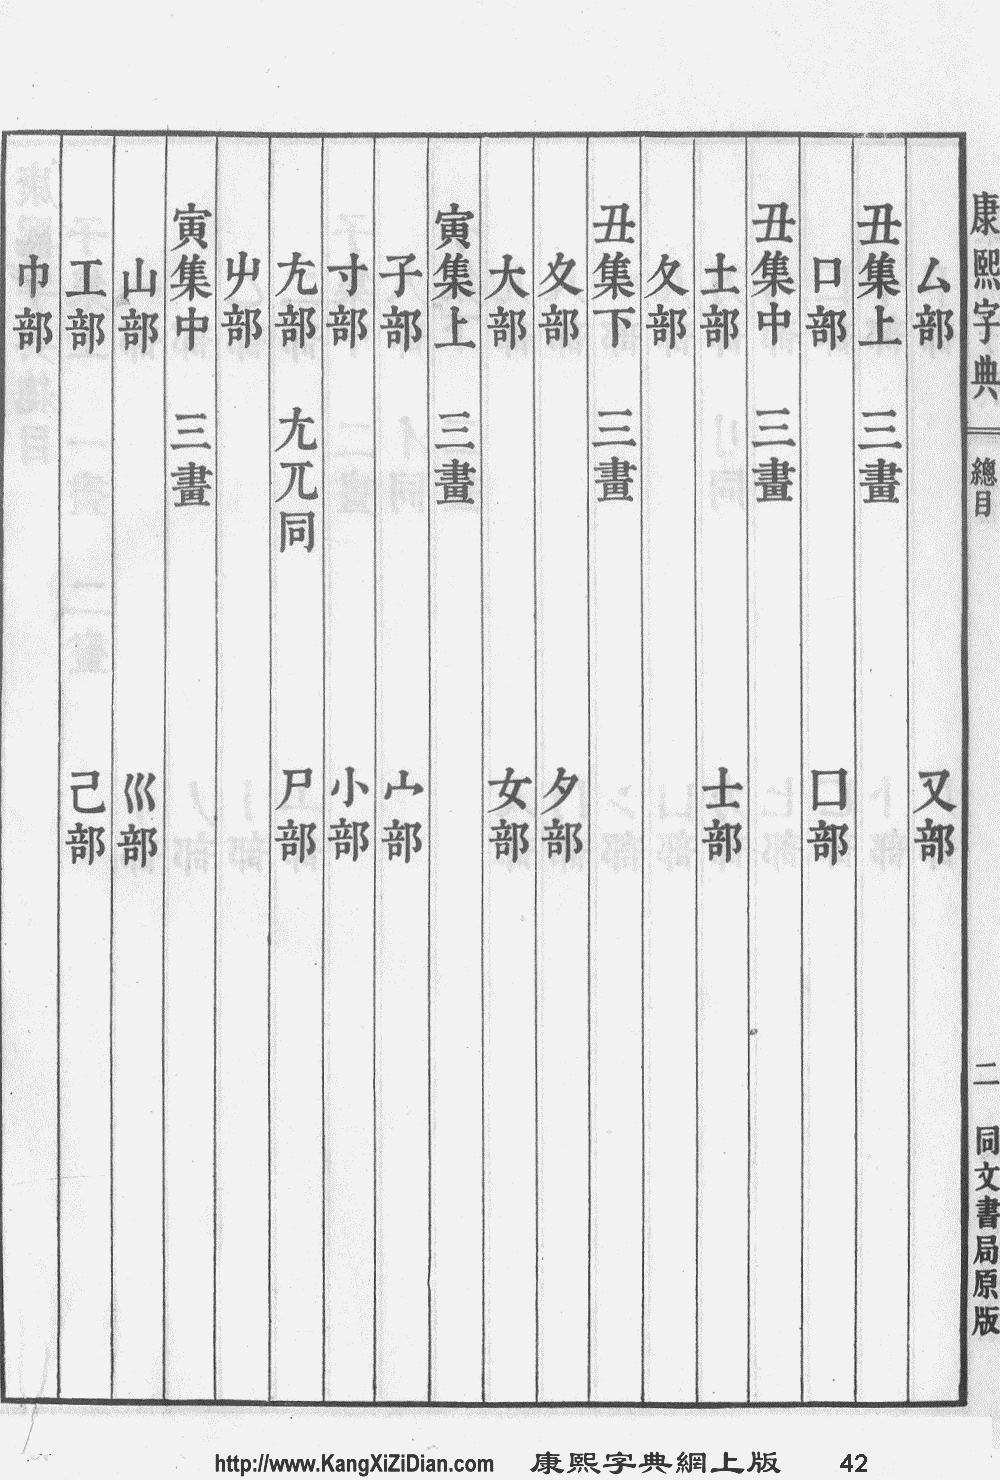 康熙字典 總目 二 同文書局原版
厶部 又部
丑集上 三畫
口部 囗部
丑集中 三畫
土部 士部
夂部
丑集下 三畫
夊部 夕部
大部 女部
寅集上 三畫
子部 宀部
寸部 小部
尢部 尣兀同 尸部
屮部
寅集中 三畫
山部 巛部
工部 己部
巾部
http://www.KangXiZiDian.com 康熙字典網上版 42